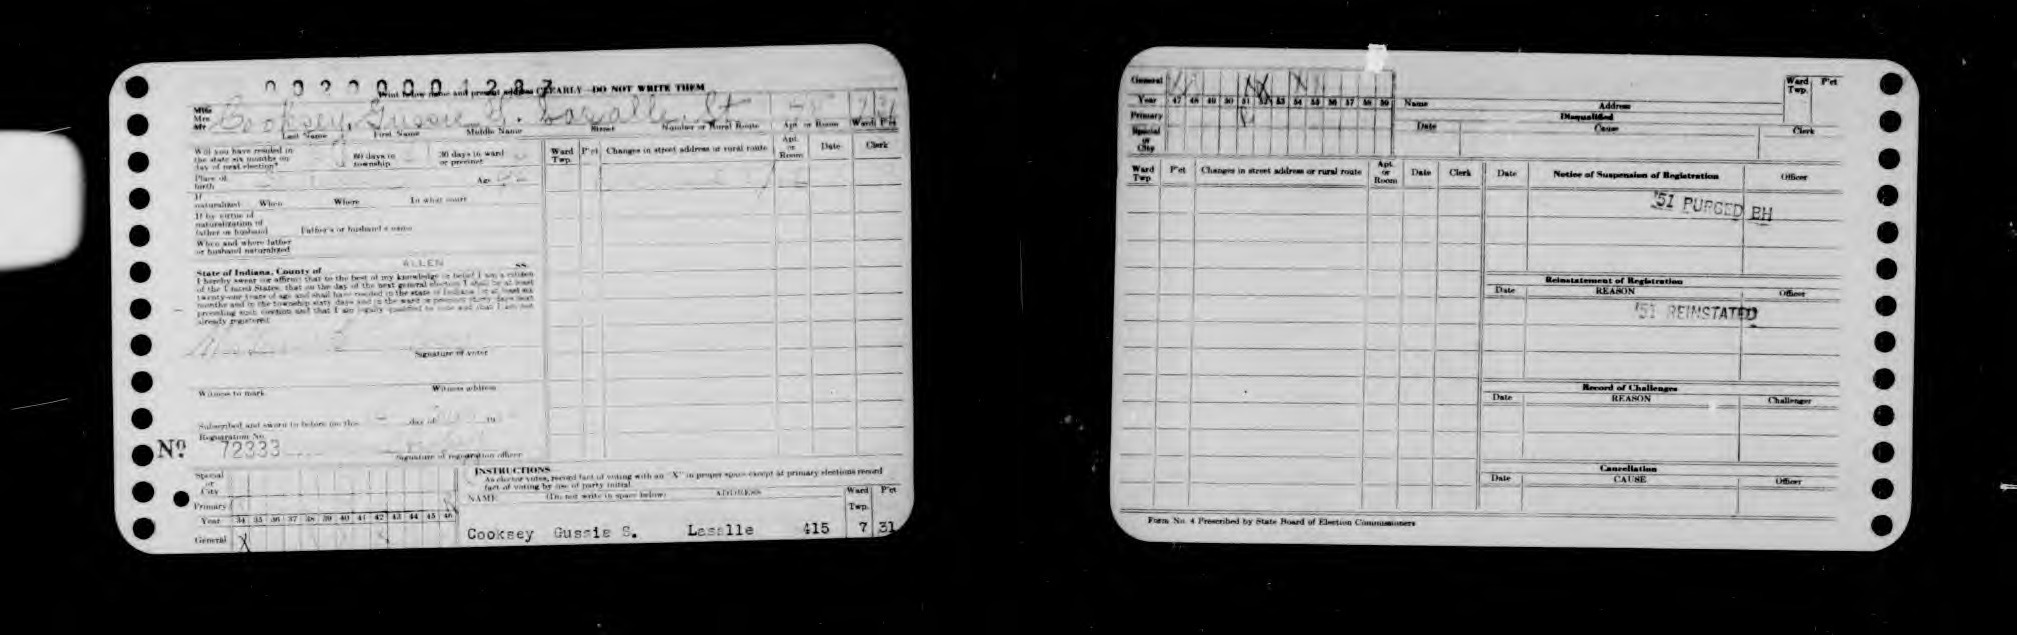 0 0 2 0 0 0 0 1 2 8 7
Print below name and present address CLEARLY—DO NOT WRITE THEM
Miss
Mrs.
Mr. Cooksey, Gussie S. Lasalle St
Last Name First Name Middle Name Street Number or Rural Route Apt. or Room Ward P'ct
Will you have resided in
the state six months on
day of next election?
60 days in
township
30 days in ward
or precinct
Place of
birth
Age
If
naturalized When Where In what court
If by virtue of
naturalization of
father or husband Father's or husband's name
When and where father
or husband naturalized
State of Indiana, County of ALLEN ss.
I hereby swear (or affirm) that to the best of my knowledge or belief I am a citizen
of the United States, that on the day of the next general election I shall be at least
twenty-one years of age and shall have resided in the state of Indiana for at least six
months and in the township sixty days and in the ward or precinct thirty days next
preceding such election and that I am legally qualified to vote and that I am not
already registered.
Signature of voter
Witness to mark Witness address
Subscribed and sworn to before me this day of 19
Registration No.
No. 72333
Signature of registration officer
Ward
Twp. P'ct Changes in street address or rural route Apt.
or
Room Date Clerk
Special
or
City
Primary
Year 34 35 36 37 38 39 40 41 42 43 44 45 46
General X
INSTRUCTIONS
As elector votes, record fact of voting with an "X" in proper space except at primary elections record
fact of voting by use of party initial.
NAME (Do not write in space below) ADDRESS Ward
Twp. P'ct
Cooksey Gussie S. Lasalle 415 7 31
General
Year 47 48 49 50 51 52 53 54 55 56 57 58 59
Primary
Special
or
City
Name Address Ward
Twp. P'ct
Disqualified
Date Cause Clerk
Ward
Twp P'ct Changes in street address or rural route Apt.
or
Room Date Clerk
Date Notice of Suspension of Registration Officer
'51 PURGED BH
Reinstatement of Registration
Date REASON Officer
'51 REINSTATED
Record of Challenges
Date REASON Challenger
Cancellation
Date CAUSE Officer
Form No. 4 Prescribed by State Board of Election Commissioners